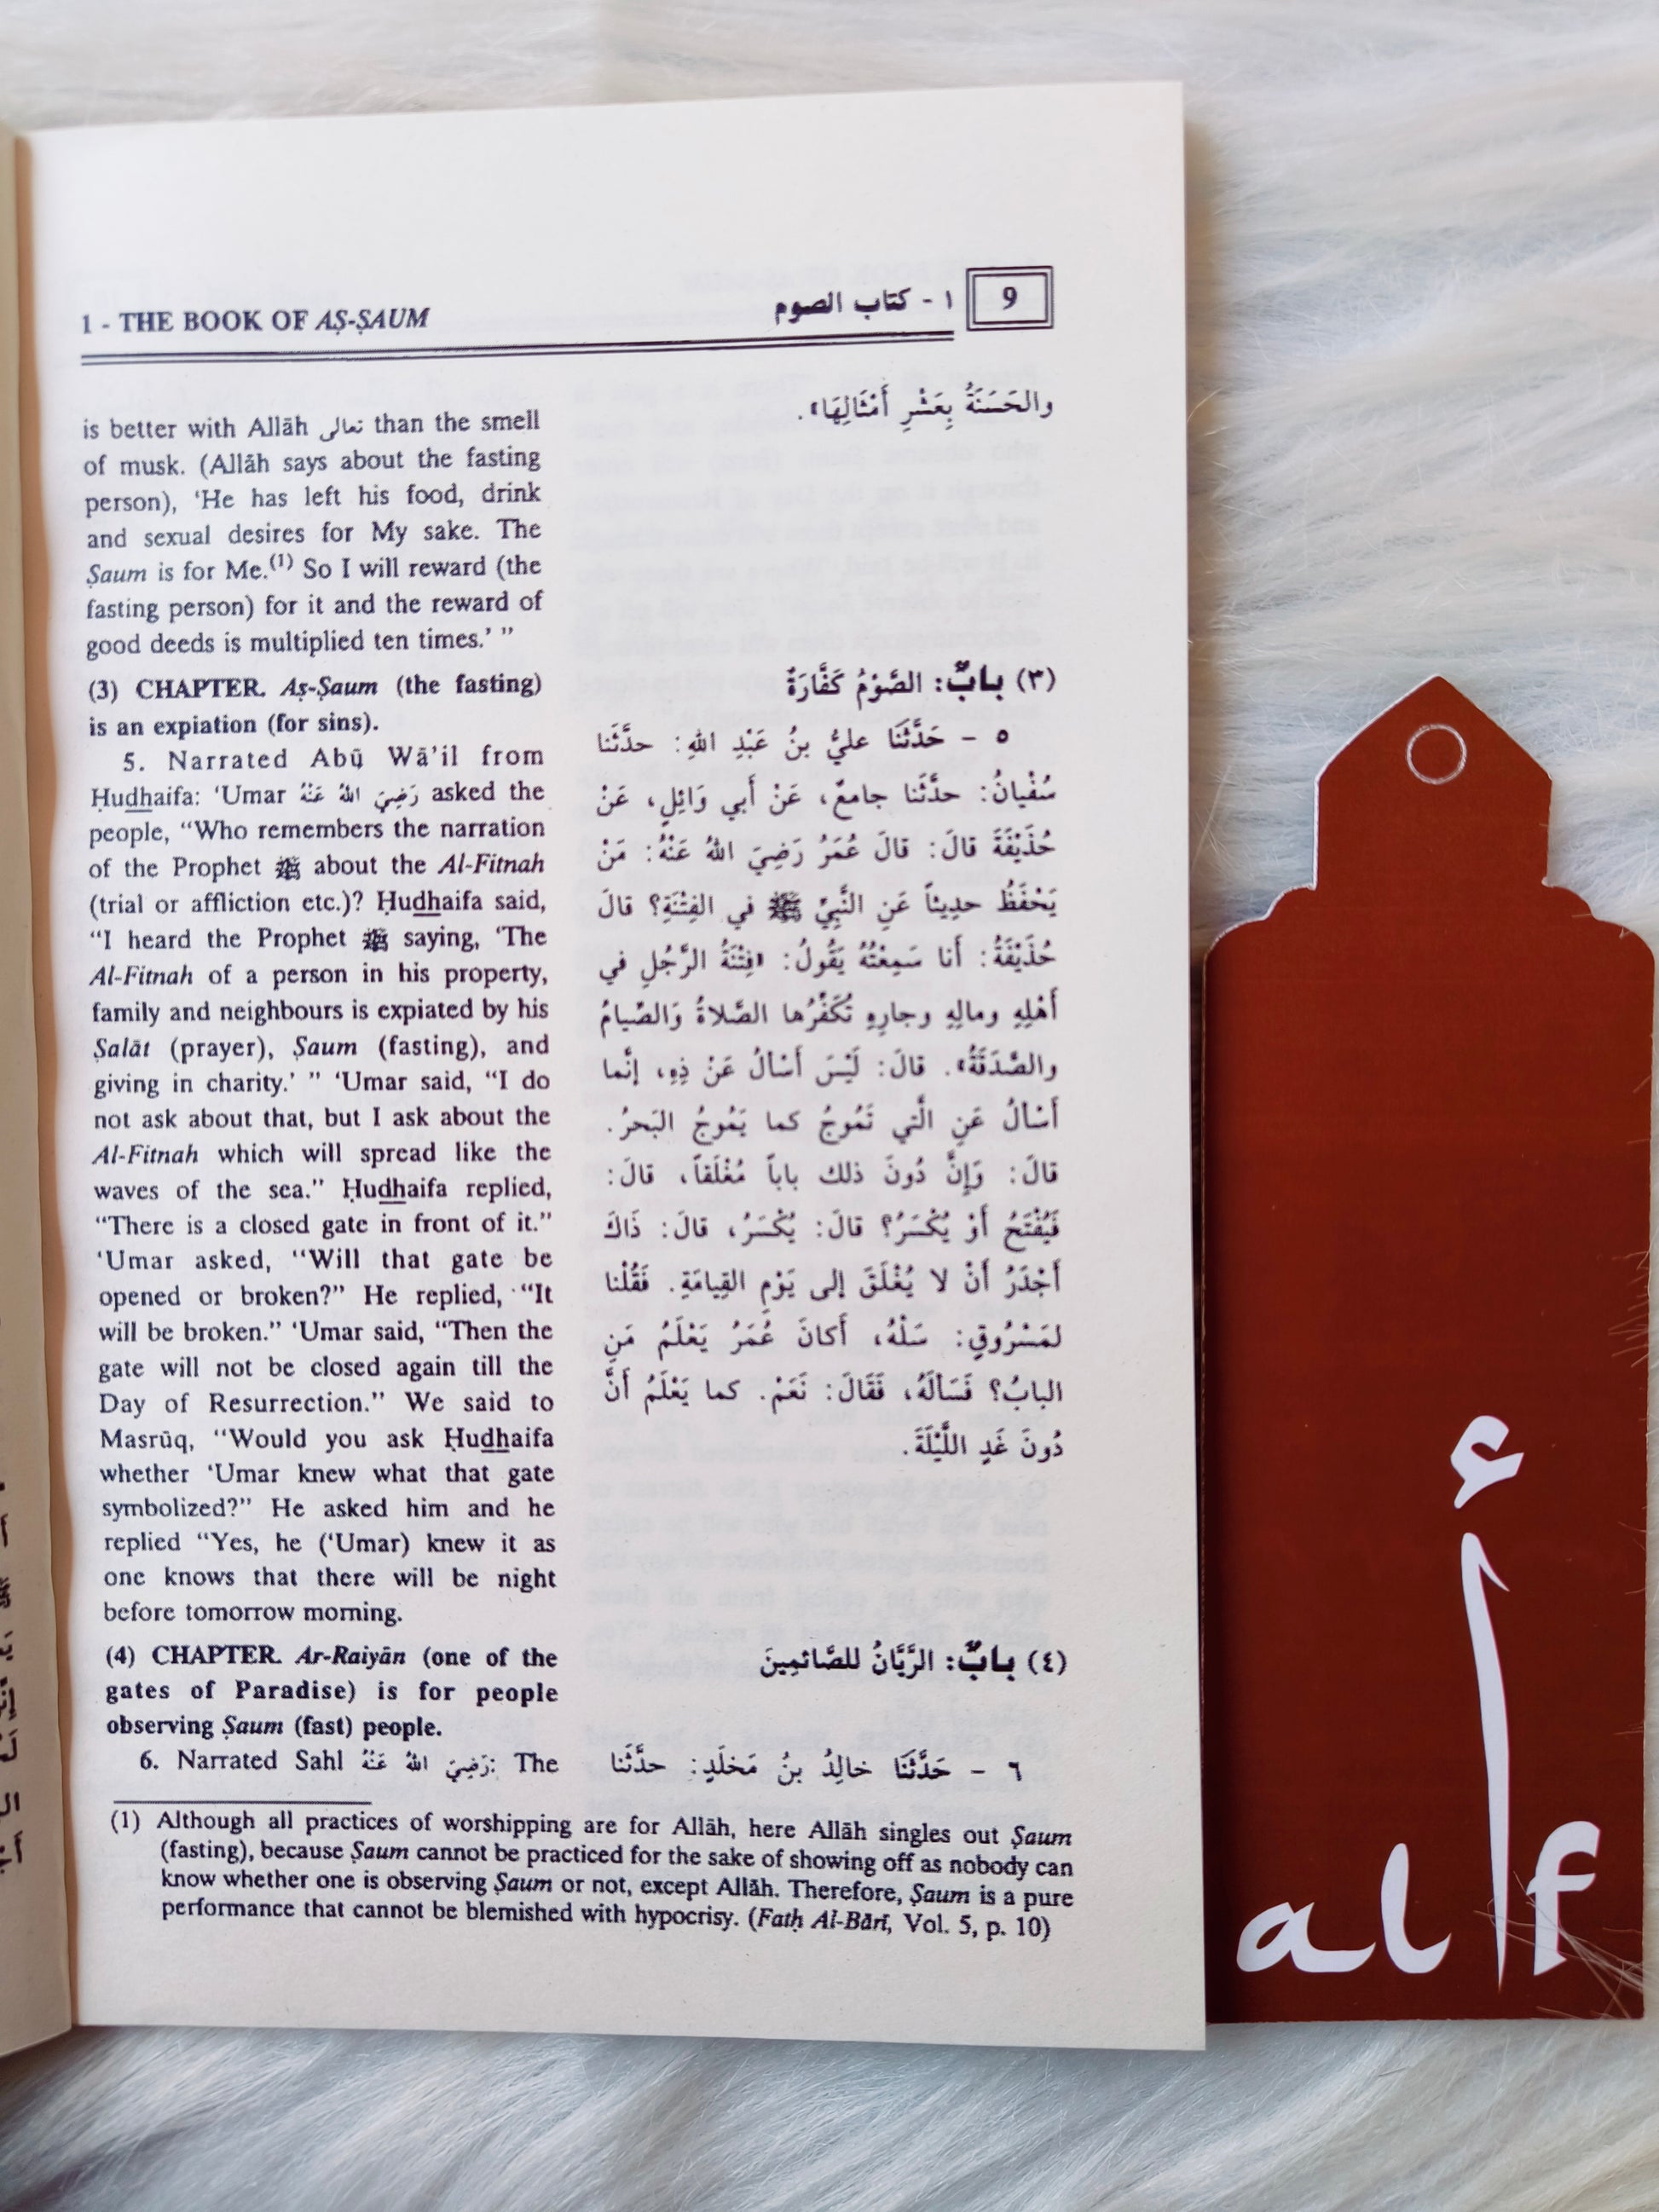 1 - THE BOOK OF AṢ-ṢAUM
١ - كتاب الصوم
9
is better with Allāh تعالى than the smell
of musk. (Allāh says about the fasting
person), ‘He has left his food, drink
and sexual desires for My sake. The
Ṣaum is for Me.(1) So I will reward (the
fasting person) for it and the reward of
good deeds is multiplied ten times.’ ”
(3) CHAPTER. Aṣ-Ṣaum (the fasting)
is an expiation (for sins).
5. Narrated Abū Wā’il from
Ḥudhaifa: ‘Umar رَضِيَ اللهُ عَنْهُ asked the
people, “Who remembers the narration
of the Prophet ﷺ about the Al-Fitnah
(trial or affliction etc.)? Ḥudhaifa said,
“I heard the Prophet ﷺ saying, ‘The
Al-Fitnah of a person in his property,
family and neighbours is expiated by his
Ṣalāt (prayer), Ṣaum (fasting), and
giving in charity.’ ” ‘Umar said, “I do
not ask about that, but I ask about the
Al-Fitnah which will spread like the
waves of the sea.” Ḥudhaifa replied,
“There is a closed gate in front of it.”
‘Umar asked, “Will that gate be
opened or broken?” He replied, “It
will be broken.” ‘Umar said, “Then the
gate will not be closed again till the
Day of Resurrection.” We said to
Masrūq, “Would you ask Ḥudhaifa
whether ‘Umar knew what that gate
symbolized?” He asked him and he
replied “Yes, he (‘Umar) knew it as
one knows that there will be night
before tomorrow morning.
(4) CHAPTER. Ar-Raiyān (one of the
gates of Paradise) is for people
observing Ṣaum (fast) people.
6. Narrated Sahl رَضِيَ اللهُ عَنْهُ: The
والحَسَنَةُ بِعَشْرِ أَمْثَالِهَا».
(٣) بابٌ: الصَّوْمُ كَفَّارَةٌ
٥ - حَدَّثَنَا عليُّ بنُ عَبْدِ اللهِ: حدَّثَنا
سُفْيانُ: حدَّثَنا جامعٌ، عَنْ أَبي وَائِلٍ، عَنْ
حُذَيْفَةَ قالَ: قالَ عُمَرُ رَضِيَ اللهُ عَنْهُ: مَنْ
يَحْفَظُ حدِيثاً عَنِ النَّبِيِّ ﷺ في الفِتْنَةِ؟ قالَ
حُذَيْفَةُ: أَنا سَمِعْتُهُ يَقُولُ: «فِتْنَةُ الرَّجُلِ في
أَهْلِهِ ومالِهِ وجارِهِ تُكَفِّرُها الصَّلاةُ وَالصِّيامُ
والصَّدَقَةُ». قالَ: لَيْسَ أَسْأَلُ عَنْ ذِهِ، إنَّما
أَسْأَلُ عَنِ الَّتي تَمُوجُ كما يَمُوجُ البَحرُ.
قالَ: وَإِنَّ دُونَ ذلك باباً مُغْلَقاً، قالَ:
فَيُفْتَحُ أَوْ يُكْسَرُ؟ قالَ: يُكْسَرُ، قالَ: ذَاكَ
أَجْدَرُ أَنْ لا يُغْلَقَ إلى يَوْمِ القِيامَةِ. فَقُلْنا
لمَسْرُوقٍ: سَلْهُ، أَكانَ عُمَرُ يَعْلَمُ مَنِ
البابُ؟ فَسَأَلَهُ، فَقَالَ: نَعَمْ. كما يَعْلَمُ أَنَّ
دُونَ غَدٍ اللَّيْلَةَ.
(٤) بابٌ: الرَّيَّانُ للصَّائمِينَ
٦ - حَدَّثَنَا خالِدُ بنُ مَخلَدٍ: حدَّثَنا
(1) Although all practices of worshipping are for Allāh, here Allāh singles out Ṣaum
(fasting), because Ṣaum cannot be practiced for the sake of showing off as nobody can
know whether one is observing Ṣaum or not, except Allāh. Therefore, Ṣaum is a pure
performance that cannot be blemished with hypocrisy. (Fatḥ Al-Bārī, Vol. 5, p. 10)
alأf